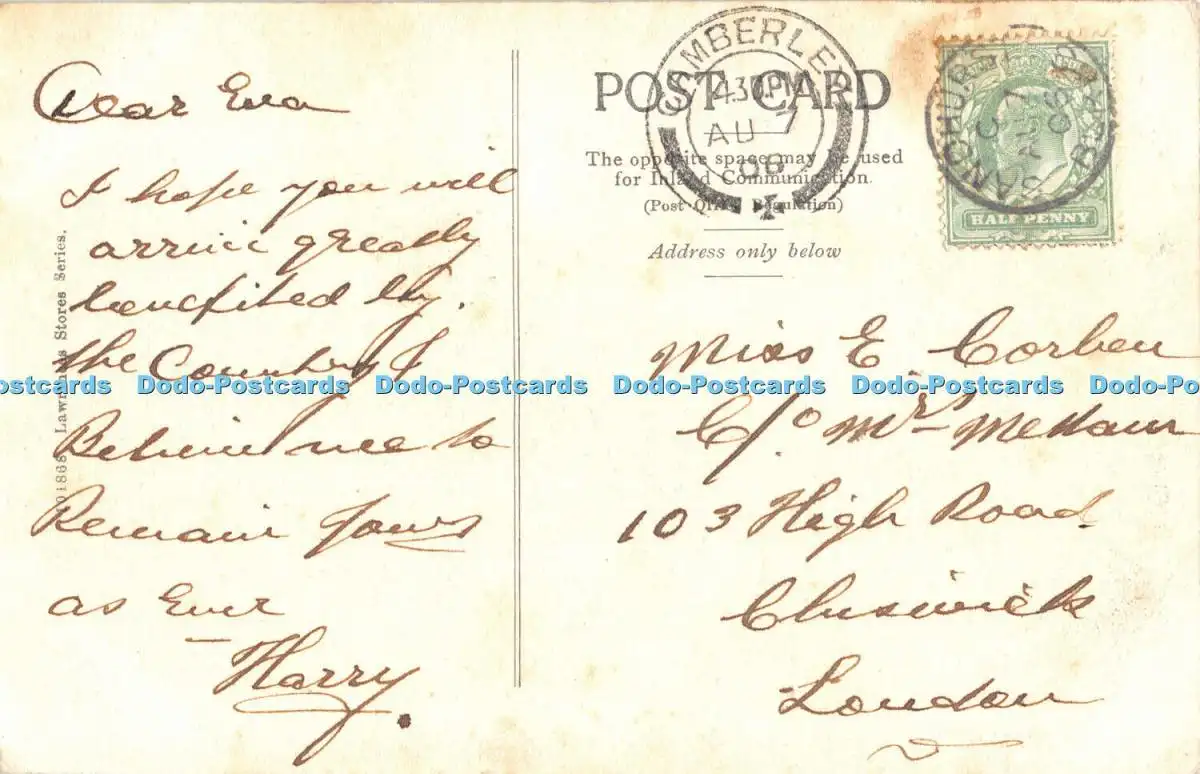 Dear Eva
I hope you will
arrive greatly
benefited by
the Country &
Believe me to
Remain Yours
as Ever
Harry
Lawrence's Stores Series.
POST CARD
The opposite space may be used
for Inland Communication.
(Post Office Regulation)
Address only below
CAMBERLEY
4.30 PM
AU 7
06
SANDHURST
C
AU 7
06
HALF PENNY
Miss E. Corben
C/o Mrs
103 High Road
Chiswick
London
Dodo-Postcards Dodo-Postcards Dodo-Postcards Dodo-Postcards Dodo-Postcards Dodo-Postcards